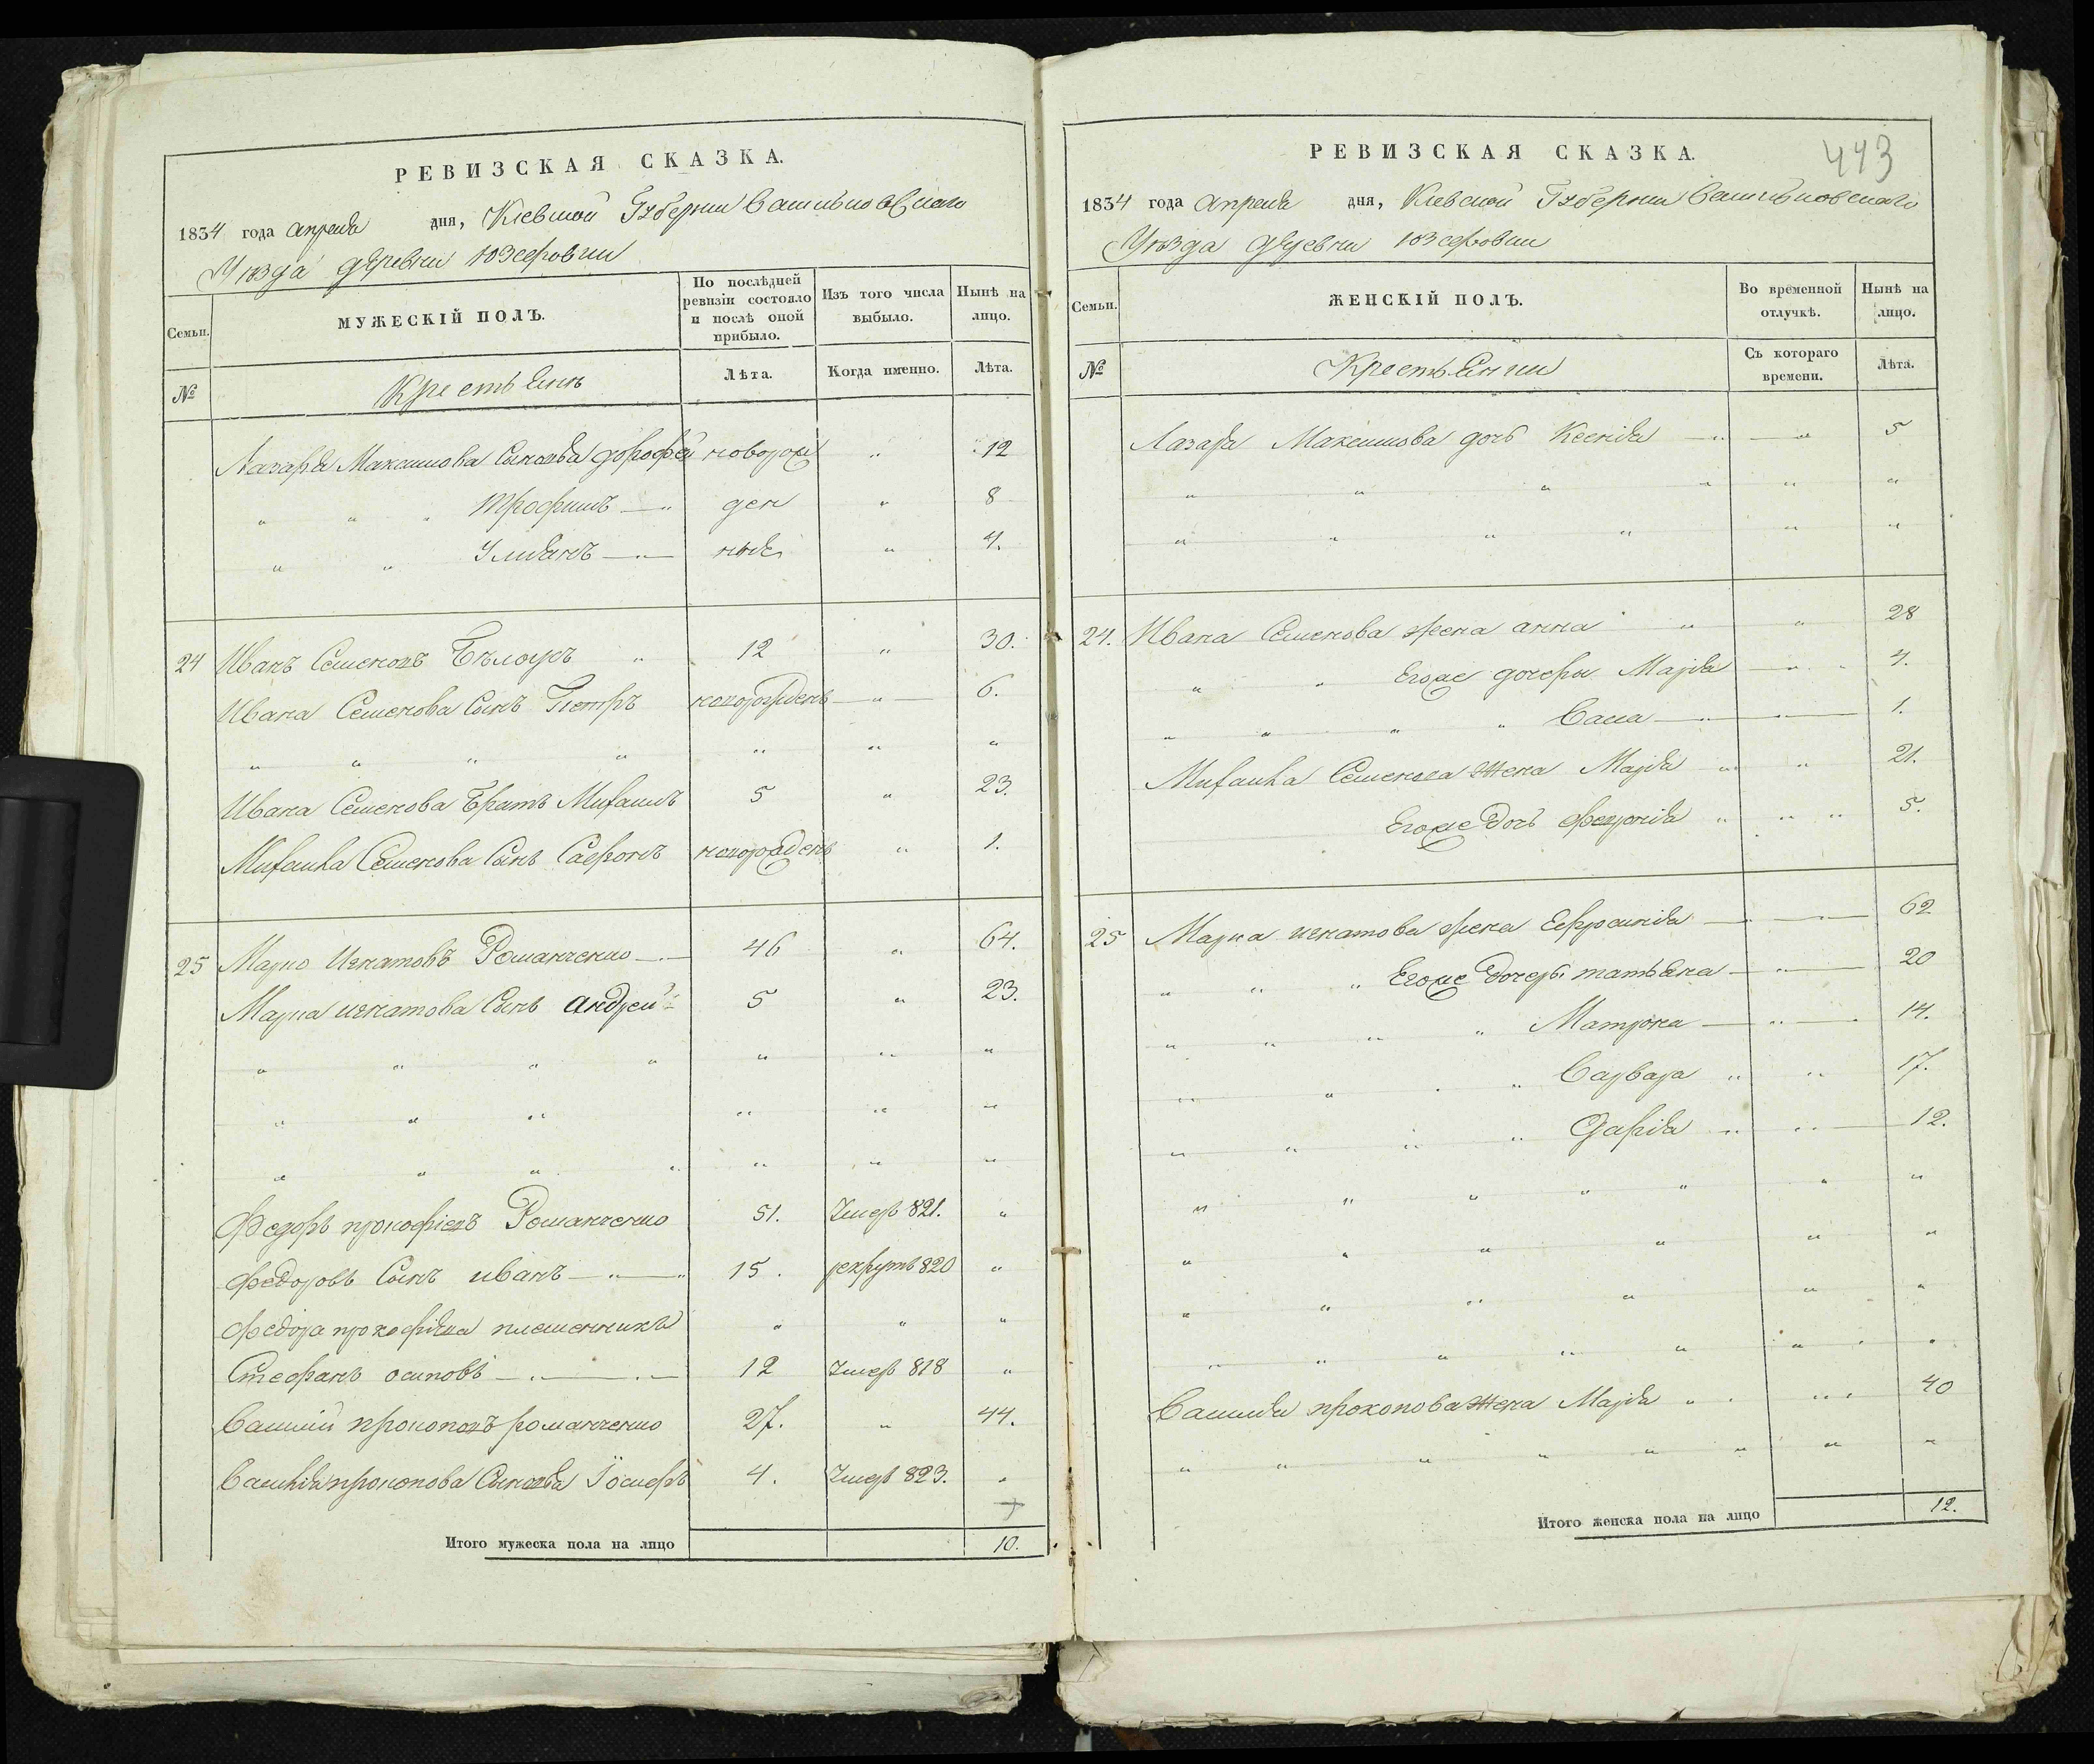 РЕВИЗСКАЯ СКАЗКА.
1834 года апреля дня, Киевской Губернии Васильковскаго
Уѣзда деревни Юзефовки
Семьи. МУЖЕСКІЙ ПОЛЪ. По послѣдней ревизіи состояло и послѣ оной прибыло. Изъ того числа выбыло. Нынѣ на лицо.
№ Крестьяне Лѣта. Когда именно. Лѣта.
Лазаря Максимова Сыновья дорофей новорож „ 12
„ „ „ Трофимъ — „ ден „ 8
„ „ Улиянъ — „ — ные „ 4.
24 Иванъ Семеновъ Бѣлоусъ „ 12 „ 30.
Ивана Семенова Сынъ Петръ новорожденъ — „ — 6.
„ „ „ „ „ „ „
Ивана Семенова братъ Михаилъ 5 „ 23.
Михаила Семенова Сынъ Сафронъ новорожденъ „ 1.
25 Марко Игнатовъ Романченко — . — 46 „ 64.
Марка игнатова Сынъ андрей 5 „ 23.
„ „ „ „ „ „ „
„ „ „ „ „ „
„ „ „ „ „ „ „
Федоръ прокофіевъ Романченко 51. Умеръ 821. „
Федоровъ Сынъ иванъ — „ — „ 15. рекрутъ 820 „
Федора прокофіева племенникъ „ „ „
Стефанъ осиповъ — . — . — 12 Умеръ 818 „
Василий прокоповъ романченко 27. „ 44.
Василія прокопова Сыновья Іосифъ 4. Умеръ 823. „
Итого мужеска пола на лицо 10.
443
РЕВИЗСКАЯ СКАЗКА.
1834 года апреля дня, Киевской Губернии Васильковскаго
Уѣзда деревни Юзефовки
Семьи. ЖЕНСКІЙ ПОЛЪ. Во временной отлучкѣ. Нынѣ на лицо.
№ Крестьянки Съ котораго времени. Лѣта.
Лазара Максимова дочь Ксения — „ — „ 5
„ „ „ „ „ „
„ „ „ „ „ „
24. Ивана Семенова жена анна „ „ 28
„ „ Егоже дочери Марія — „ „ 4.
„ „ „ „ Васса — „ — „ — 1.
Михаила Семенова жена Марія „ „ 21.
Егоже дочь Феврония „ „ „ 5.
25 Марка игнатова жена Ефросинія — „ — „ — 62
„ „ „ Егоже дочери татьяна — „ — 20
„ „ „ „ Матрона — „ — 14.
„ „ . „ Варвара „ „ 17.
„ „ „ „ Дарія „ „ — 12.
„ „ „ „ „ „ „
„ „ „ „ „ „
„ „ „ „ „ „
„ „ „ „ „ „ „
Василия прокопова жена Марія „ . „ „ 40
„ „ „ „ „ „ „ „
Итого женска пола на лицо 12.